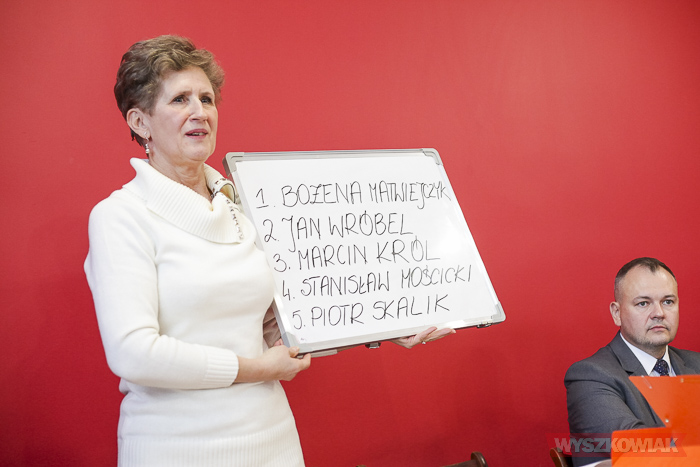 1. BOŻENA MATWIEJCZYK
2. JAN WRÓBEL
3. MARCIN KRÓL
4. STANISŁAW MOŚCICKI
5. PIOTR SKALIK
WYSZKOWIAK